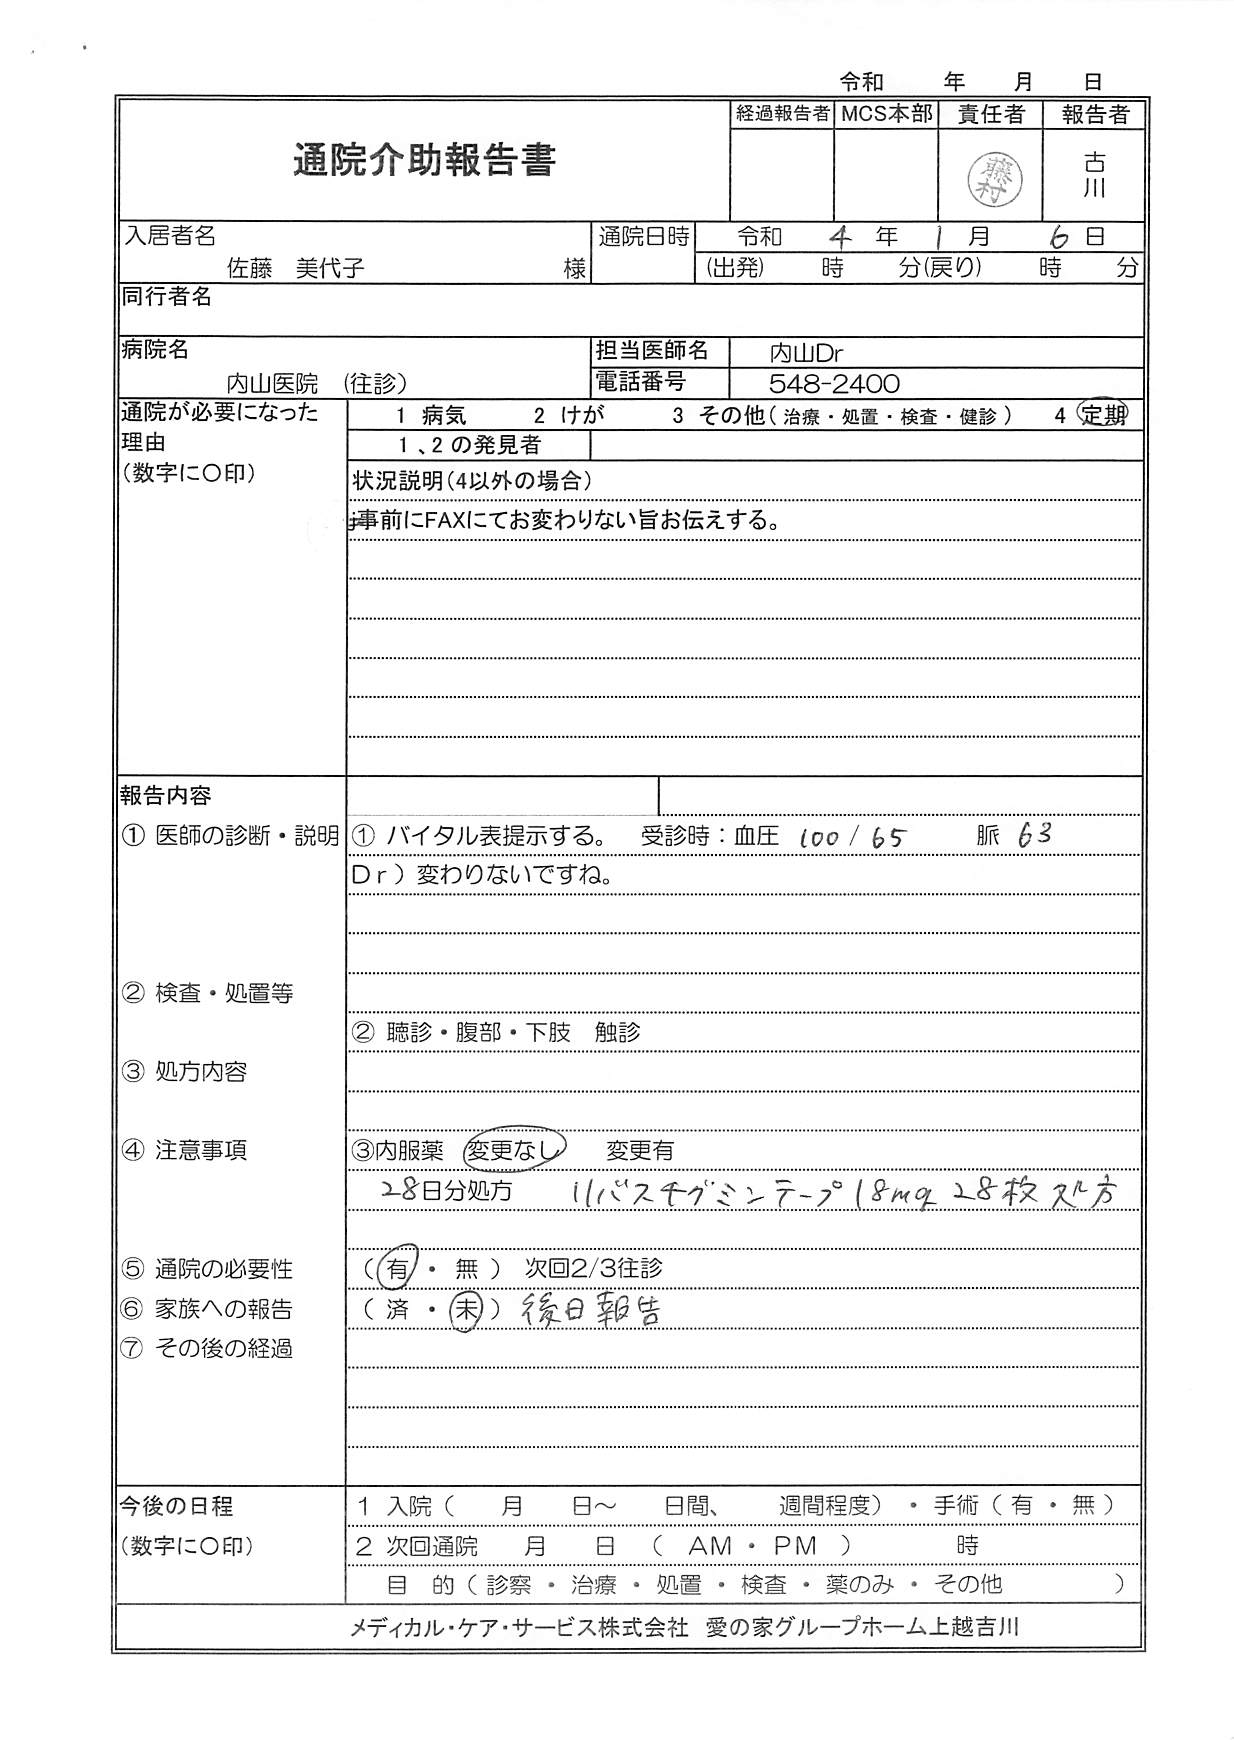 令和　　年　　月　　日
通院介助報告書
経過報告者 MCS本部 責任者 報告者
藤村
古川
入居者名
佐藤　美代子　様
通院日時 令和 4 年 1 月 6 日
(出発)　時　分(戻り)　時　分
同行者名
病院名
内山医院　(往診)
担当医師名 内山Dr
電話番号 548-2400
通院が必要になった
理由
(数字に〇印)
1 病気　2 けが　3 その他(治療・処置・検査・健診)　4 定期
1、2の発見者
状況説明(4以外の場合)
j事前にFAXにてお変わりない旨お伝えする。
報告内容
① 医師の診断・説明 ① バイタル表提示する。　受診時：血圧 100 / 65　脈 63
Dr）変わりないですね。
② 検査・処置等
② 聴診・腹部・下肢　触診
③ 処方内容
④ 注意事項 ③内服薬　変更なし　変更有
28日分処方　リバスチグミンテープ 18mg 28枚 処方
⑤ 通院の必要性 （ 有 ・ 無 ）　次回2/3往診
⑥ 家族への報告 （ 済 ・ 未 ） 後日報告
⑦ その後の経過
今後の日程
(数字に〇印)
1 入院（　月　日～　日間、　週間程度）・手術（ 有 ・ 無 ）
2 次回通院　月　日　（ AM・PM ）　時
目　的（ 診察 ・ 治療 ・ 処置 ・ 検査 ・ 薬のみ ・ その他　）
メディカル・ケア・サービス株式会社 愛の家グループホーム上越吉川